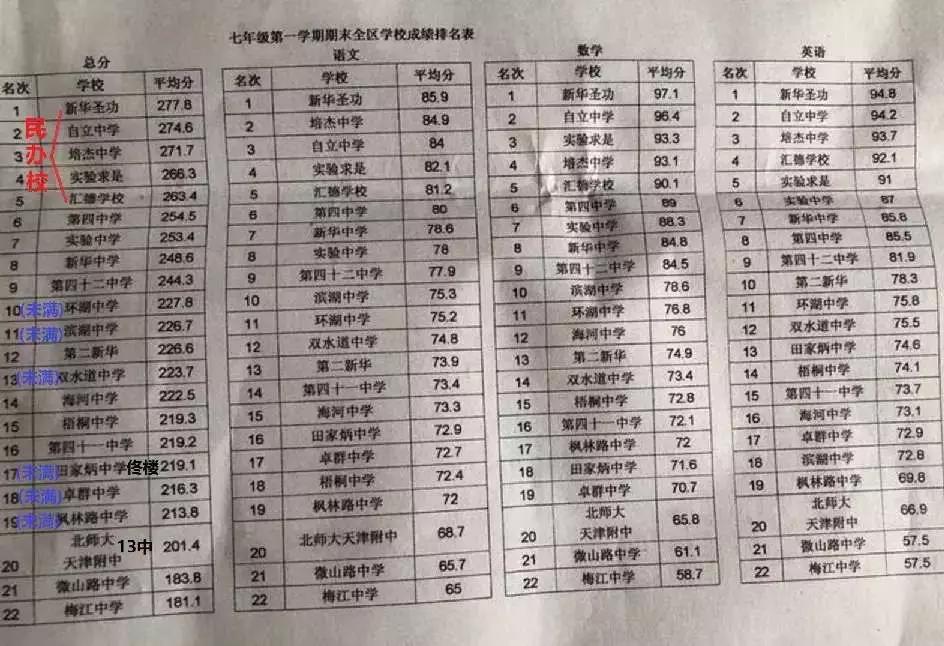 七年级第一学期期末全区学校成绩排名表
总分
名次 学校 平均分
民办校
1 新华圣功 277.8
2 自立中学 274.6
3 培杰中学 271.7
4 实验求是 266.3
5 汇德学校 263.4
6 第四中学 254.5
7 实验中学 253.4
8 新华中学 248.6
9 第四十二中学 244.3
10(未满) 环湖中学 227.8
11(未满) 滨湖中学 226.7
12 第二新华 226.6
13(未满) 双水道中学 223.7
14 海河中学 222.5
15 梧桐中学 219.3
16 第四十一中学 219.2
17(未满) 田家炳中学 佟楼 219.1
18(未满) 卓群中学 216.3
19(未满) 枫林路中学 213.8
20 北师大天津附中 13中 201.4
21 微山路中学 183.8
22 梅江中学 181.1
语文
名次 学校 平均分
1 新华圣功 85.9
2 培杰中学 84.9
3 自立中学 84
4 实验求是 82.1
5 汇德学校 81.2
6 第四中学 80
7 新华中学 78.6
8 实验中学 78
9 第四十二中学 77.9
10 滨湖中学 75.3
11 环湖中学 75.2
12 双水道中学 74.8
13 第二新华 73.9
14 第四十一中学 73.4
15 海河中学 73.3
16 田家炳中学 72.9
17 卓群中学 72.7
18 梧桐中学 72.4
19 枫林路中学 72
20 北师大天津附中 68.7
21 微山路中学 65.7
22 梅江中学 65
数学
名次 学校 平均分
1 新华圣功 97.1
2 自立中学 96.4
3 实验求是 93.3
4 培杰中学 93.1
5 汇德学校 90.1
6 第四中学 89
7 实验中学 88.3
8 新华中学 84.8
9 第四十二中学 84.5
10 滨湖中学 78.6
11 环湖中学 76.8
12 海河中学 76
13 第二新华 74.9
14 双水道中学 73.4
15 梧桐中学 72.8
16 第四十一中学 72.1
17 枫林路中学 72
18 田家炳中学 71.6
19 卓群中学 70.7
20 北师大天津附中 65.8
21 微山路中学 61.1
22 梅江中学 58.7
英语
名次 学校 平均分
1 新华圣功 94.8
2 自立中学 94.2
3 培杰中学 93.7
4 汇德学校 92.1
5 实验求是 91
6 实验中学 87
7 新华中学 85.8
8 第四中学 85.5
9 第四十二中学 81.9
10 第二新华 78.3
11 环湖中学 75.8
12 双水道中学 75.5
13 田家炳中学 74.6
14 梧桐中学 74.1
15 第四十一中学 73.7
16 海河中学 73.1
17 卓群中学 72.9
18 滨湖中学 72.8
19 枫林路中学 69.8
20 北师大天津附中 66.9
21 微山路中学 57.5
22 梅江中学 57.5